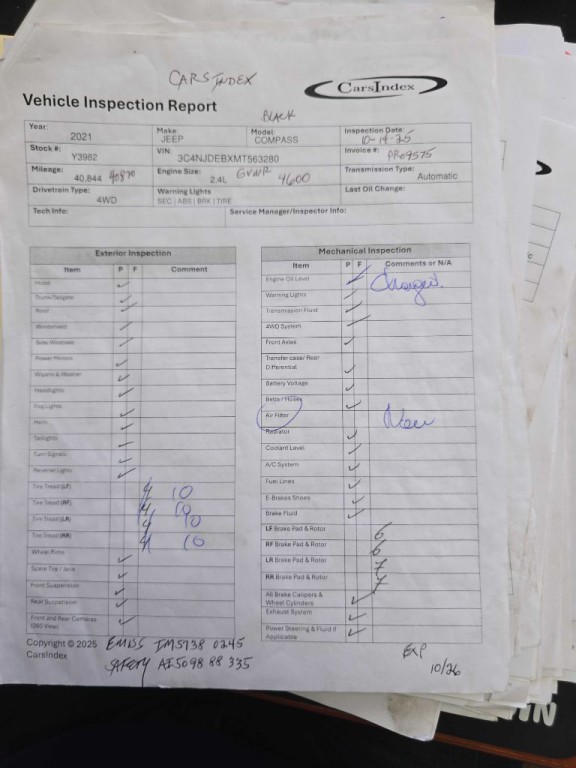 CARS INDEX
CarsIndex
Vehicle Inspection Report
BLACK
Year: 2021 Make: JEEP Model: COMPASS Inspection Date: 10-14-25
Stock #: Y3982 VIN: 3C4NJDEBXMT563280 Invoice #: PR09575
Mileage: 40,844 40870 Engine Size: 2.4L GVWR 4600 Transmission Type: Automatic
Drivetrain Type: 4WD Warning Lights SEC | ABS | BRK | TIRE Last Oil Change:
Tech Info: Service Manager/Inspector Info:
Exterior Inspection
Item P F Comment
Hood ✓
Trunk/Tailgate ✓
Roof ✓
Windshield ✓
Side Windows ✓
Power Mirrors ✓
Wipers & Washer ✓
Headlights ✓
Fog Lights ✓
Horn ✓
Taillights ✓
Turn Signals ✓
Reverse Lights ✓
Tire Tread (LF) 10
Tire Tread (RF) 10
Tire Tread (LR) 10
Tire Tread (RR) 10
Wheel Rims ✓
Spare Tire / Jack ✓
Front Suspension ✓
Rear Suspension ✓
Front and Rear Cameras
(360 View) ✓
Mechanical Inspection
Item P F Comments or N/A
Engine Oil Level ✓ Changed
Warning Lights ✓
Transmission Fluid ✓
4WD System ✓
Front Axles ✓
Transfer case/ Rear
Differential ✓
Battery Voltage ✓
Belts / Hoses ✓
Air Filter New
Radiator ✓
Coolant Level ✓
A/C System ✓
Fuel Lines ✓
E-Brakes Shoes ✓
Brake Fluid ✓
LF Brake Pad & Rotor 6
RF Brake Pad & Rotor 6
LR Brake Pad & Rotor 7
RR Brake Pad & Rotor 7
All Brake Calipers &
Wheel Cylinders ✓
Exhaust System ✓
Power Steering & Fluid if
Applicable ✓
Copyright © 2025
CarsIndex
EMISS IM5738 0245
Safety AI5098 88 335
EXP
10/26